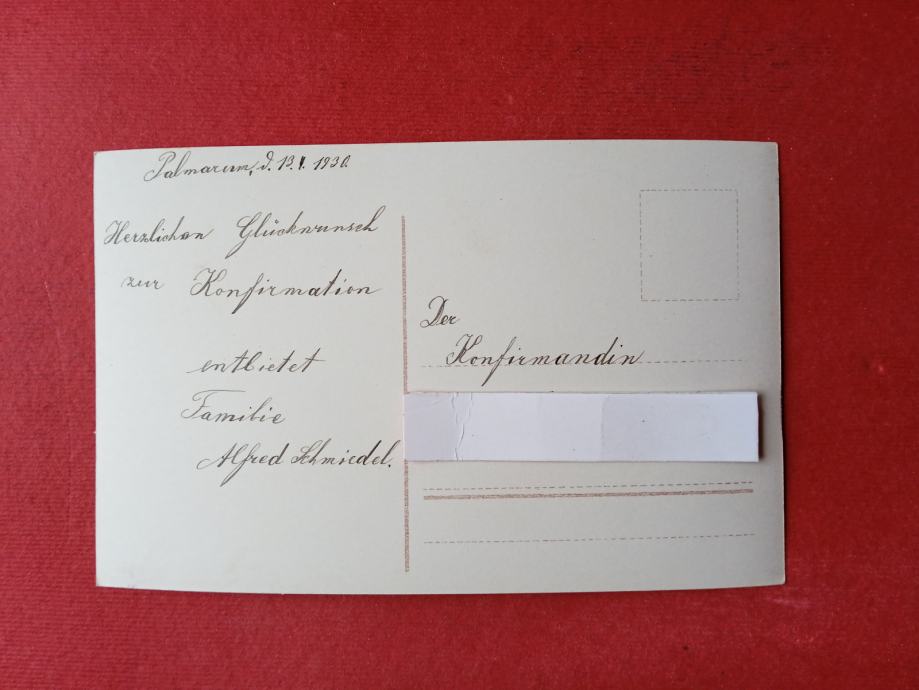 Palmarum, d. 13.4. 1930.
Herzlichen Glückwunsch
zur Konfirmation
entbietet
Familie
Alfred Schmiedel.
Der
Konfirmandin